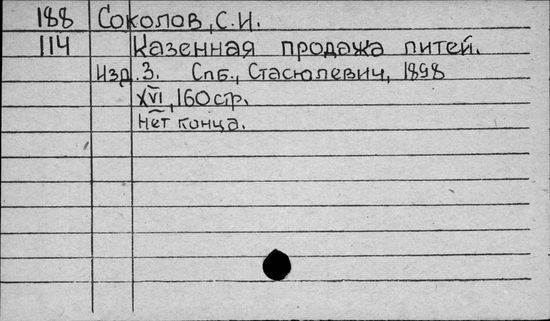 188 Соколов, С.И.
114 Казенная продажа питей.
Изд. 3. Спб., Стасюлевич, 1898
XVI, 160 стр.
Нет конца.